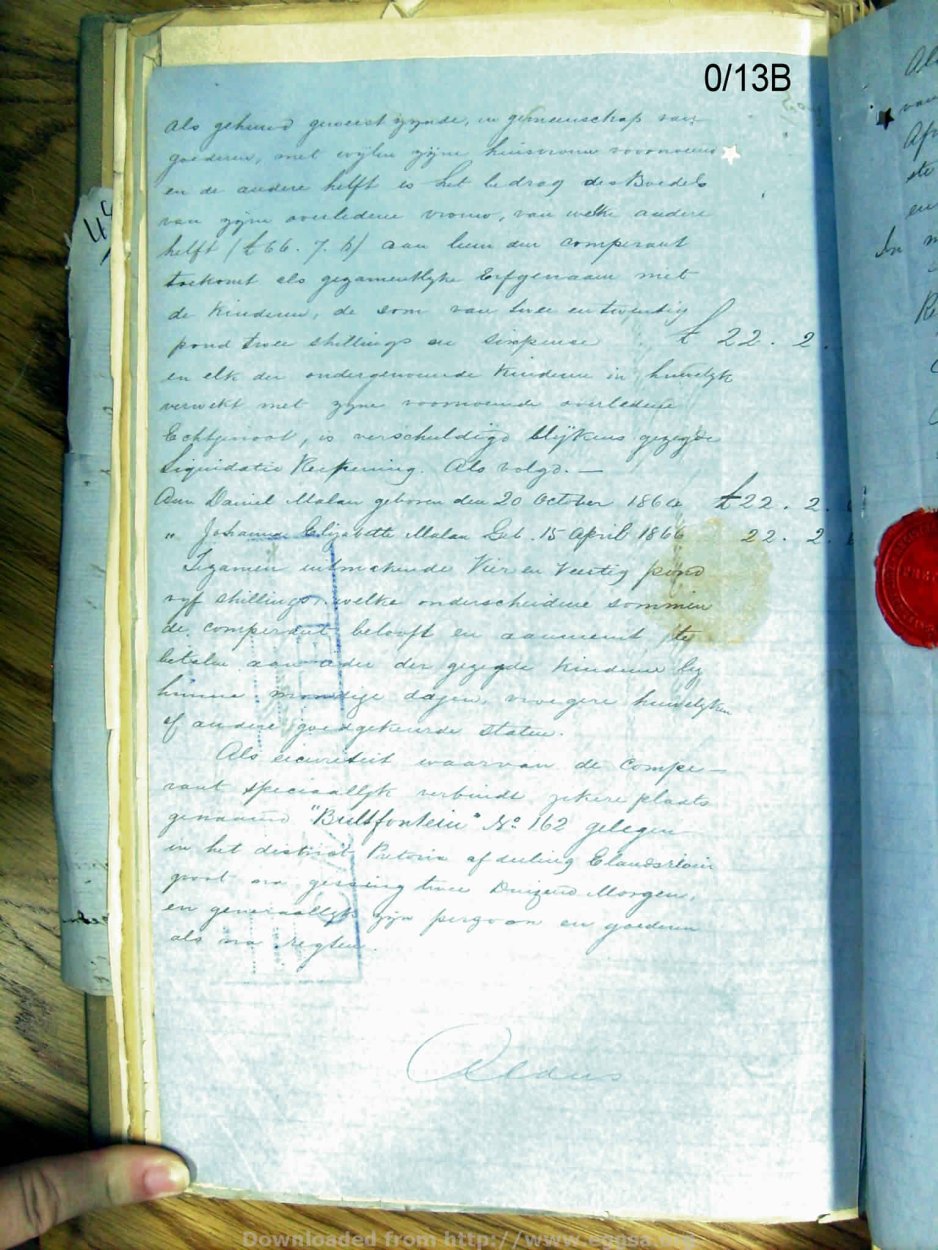 0/13B
als gehuwd geweest zynde, in gemeenschap van
goederen, met wylen zyne huisvrouw voornoemd
en de andere helft is het bedrag des Boedels
van zyne overledene vrouw, van welke andere
helft (£66. 7. 6) aan hem den comparant
toekomt als gezamentlyke Erfgenaam met
de kinderen, de som van twee en twintig
pond twee shillings en sixpence £ 22. 2.
en elk der ondergenoemde kinderen in huwelyk
verwekt met zyne voornoemde overledene
Echtgenoot, is verschuldigd blykens gezegde
Liquidatie Rekening. Als volgd. —
Aan Daniel Malan geboren den 20 October 1864 £22. 2.
" Johanna Elizabeth Malan Geb. 15 April 1866 22. 2. 6
Tezamen uitmakende Vier en Veertig pond
vyf shillings, welke onderscheidene sommen
de comparant belooft en aanneemt te
betalen aan ieder der gezegde kinderen by
hunne mondige dagen, vroegere huwelyken
of andere goedgekeurde staten.
Als securiteit waarvan de Compa-
rant speciaallyk verbindt zekere plaats
genaamd "Bultfontein" No 162 gelegen
in het district Pretoria afdeeling Elandsrivier
groot na gissing twee Duizend Morgen,
en generaallyk zyn persoon en goederen
als na regten.
Downloaded from http://www.eggsa.org